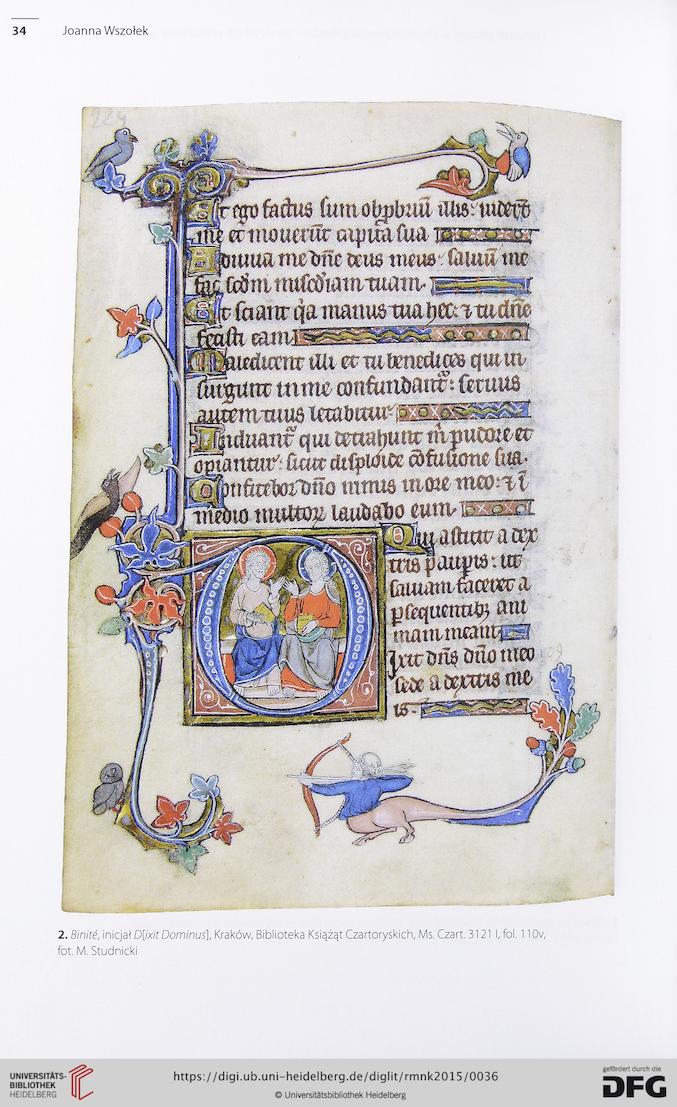 34 Joanna Wszołek
224
Et ego factus sum obp̱briū illis: uider̄t
me et mouerūt capita sua
Adiuua me dñe deus meus: saluū me
fac scd̄m misc̄diam tuam.
Et sciant q̄a manus tua hec: ⁊ tu dñe
fecisti eam
Maledicent illi et tu benedices qui in
surgunt in me confundant̄: seruus
autem tuus letabitur
Induant̄ qui detrahunt m̄ pudore et
opiantur: sicut disploide cōfusione sua.
Confitebor dño nimis in ore meo: ⁊ ī
medio multoꝝ laudabo eum.
Qui astitit a dex
tris paupis: ut
saluam faceret a
ꝑsequentibꝫ ani
mam meam
D
Ixit dñs dño meo
sede a dextris me
is.
2. Binité, inicjał D[ixit Dominus], Kraków, Biblioteka Książąt Czartoryskich, Ms. Czart. 3121 I, fol. 110v,
fot. M. Studnicki
UNIVERSITÄTS-
BIBLIOTHEK
HEIDELBERG
https://digi.ub.uni-heidelberg.de/diglit/rmnk2015/0036
© Universitätsbibliothek Heidelberg
gefördert durch die
DFG